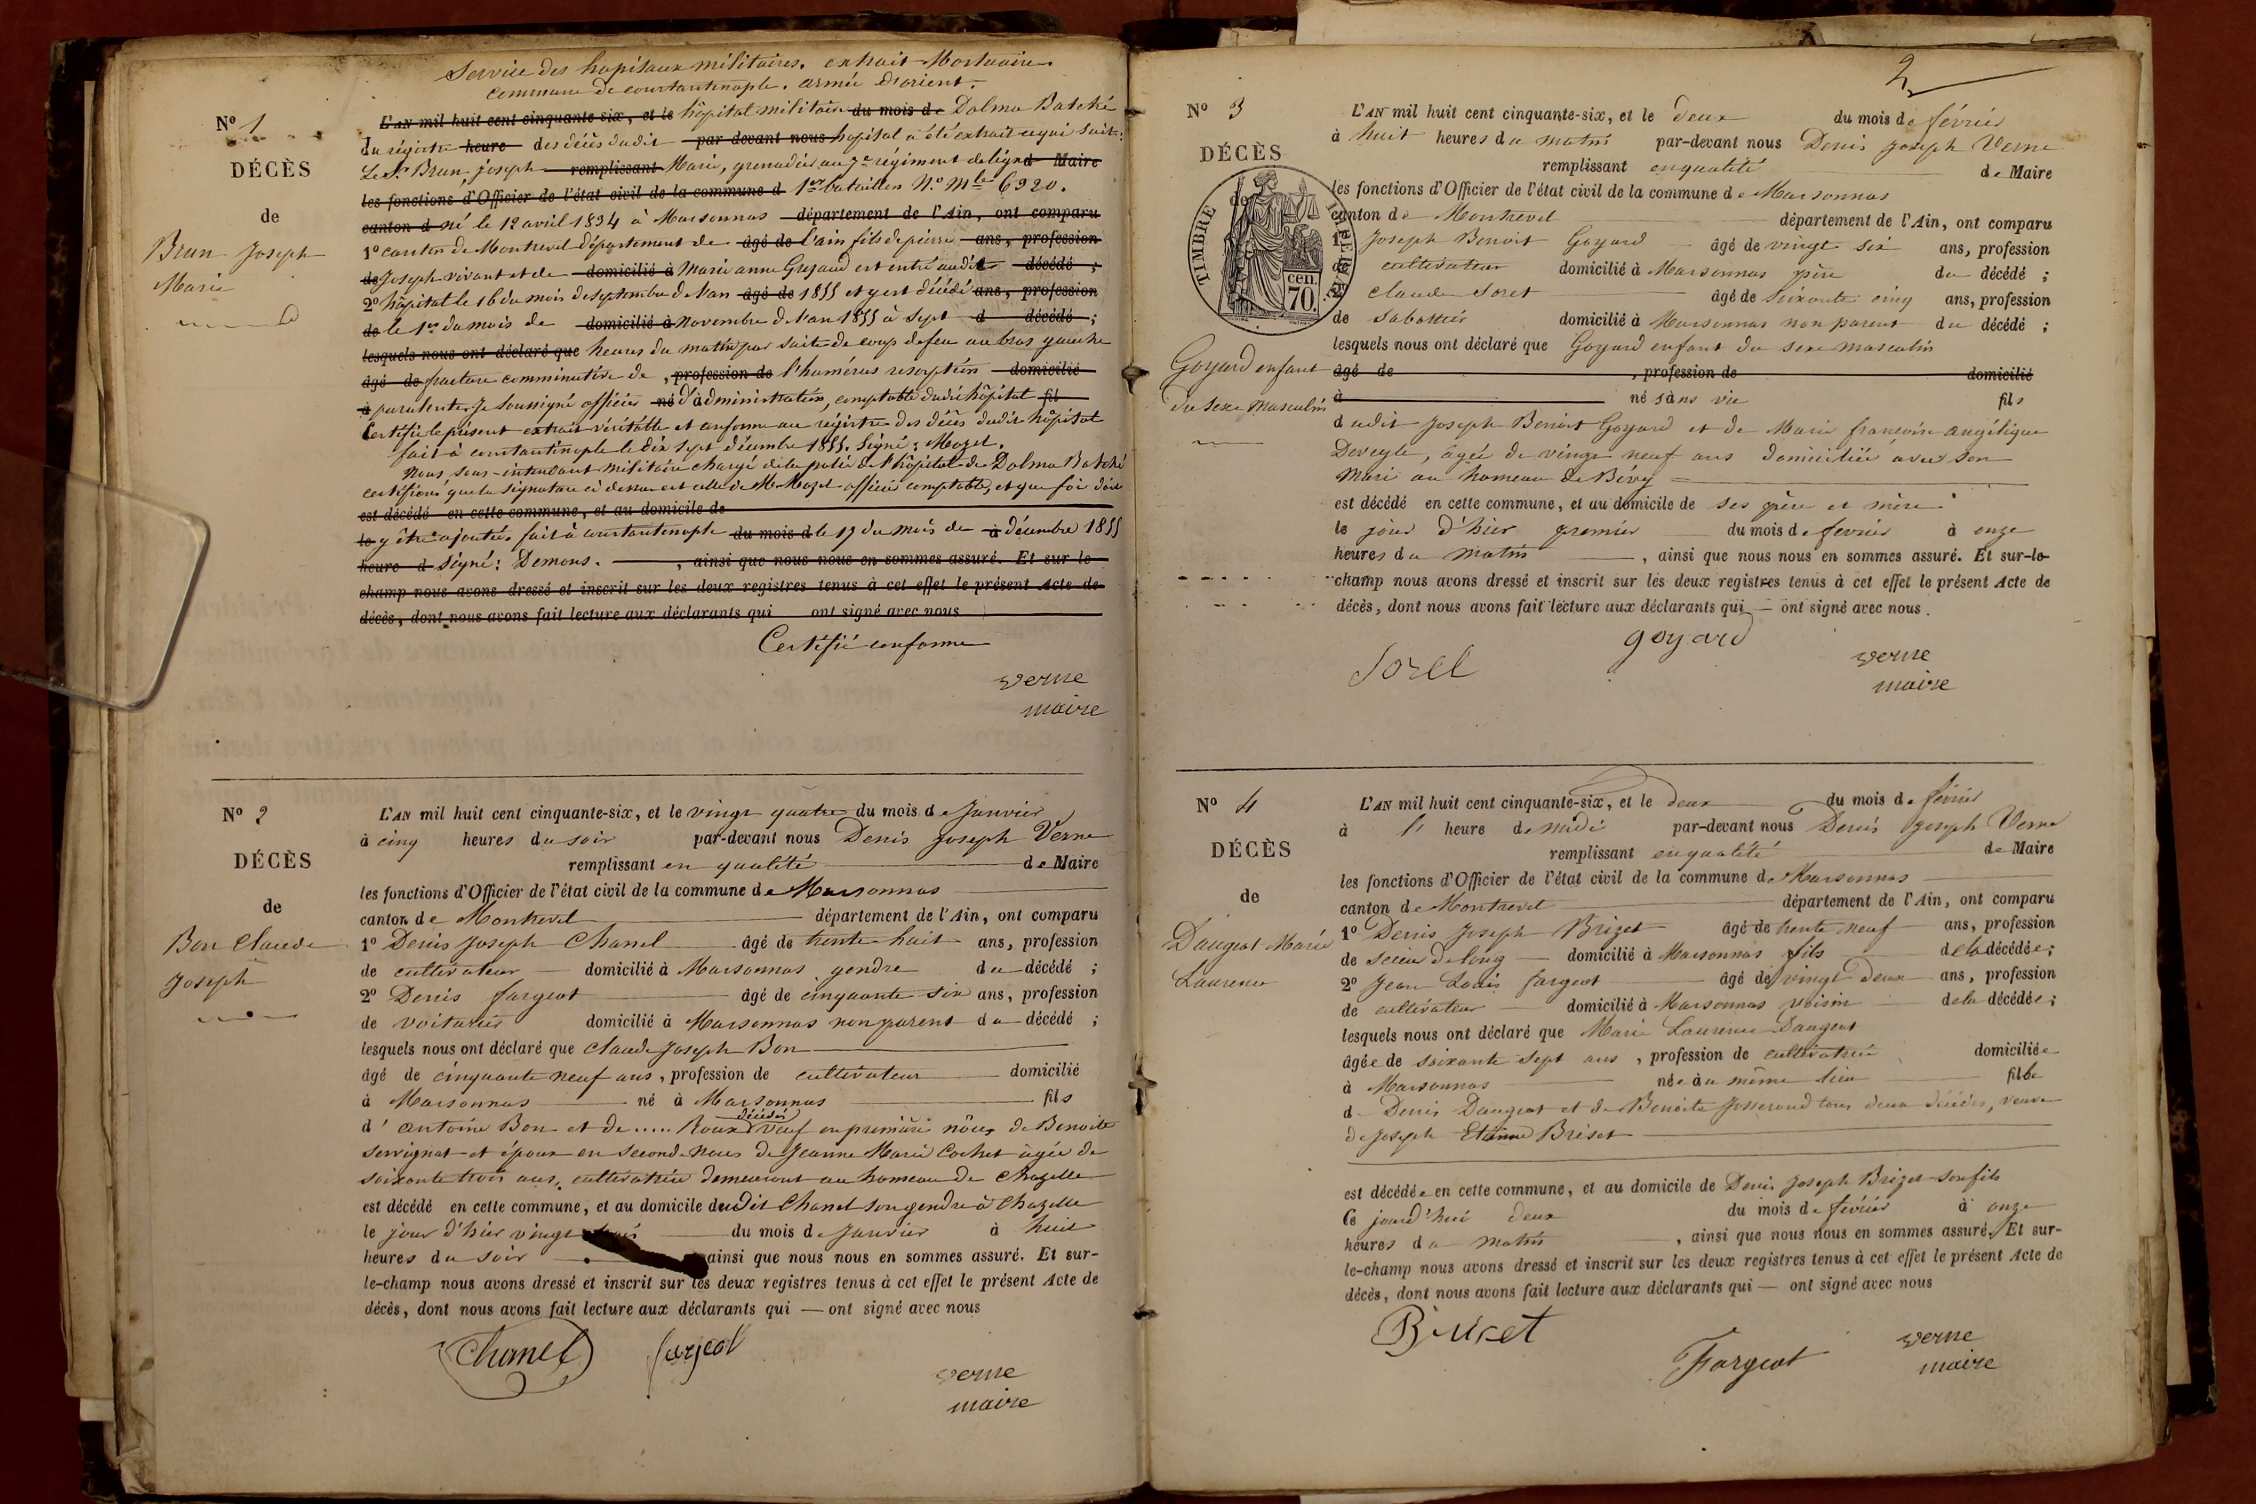 Service des hopitaux militaires. extrait Mortuaire.
Commune de constantinople. armée d'orient.
N° 1
DÉCÈS
de
Brun Joseph
Marie
L'AN mil huit cent cinquante-six, et le hôpital militaire du mois de Dolma Batché
du régistre heure des décès dudit par-devant nous hopital a été extrait ce qui suit:
Le Sr Brun, joseph remplissant Marie, grenadier au 7e régiment de ligne Maire
les fonctions d'Officier de l'état civil de la commune d 1er bataillon N.° Mle 6920.
canton d né le 12 avril 1834 à Marsonnas département de l'Ain, ont comparu
1° canton de Montrevel département de âgé de l'ain fils de pierre ans, profession
de Joseph vivant et de domicilié à Marie anne Gujaud est entré audit décédé ;
2° hôpital le 16 du mois de septembre de l'an âgé de 1855 et y est décédé ans, profession
de le 1er du mois de domicilié à novembre de l'an 1855 à sept d décédé ;
lesquels nous ont déclaré que heures du matin par suite de coup de feu au bras gauche
âgé de fracture comminutive de , profession de l'humérus resorption domicilié
à purulente. Je soussigné officier né d'administration, comptable dudit hôpital fil
Certifie le présent extrait véritable et conforme au régistre des décès dudit hôpital
fait à constantinople le dix sept décembre 1855. Signé: Mozel.
Nous, sous-intendant militaire chargé de la police de l'hôpital de Dolma Batché
certifions que la signature ci dessus est celle de Mr Mozel officier comptable, et que foi doit
est décédé en cette commune, et au domicile de
le y être ajoutée fait à constantinople du mois d le 17 du mois de à décembre 1855
heure d signé: Demons. , ainsi que nous nous en sommes assuré. Et sur-le-
champ nous avons dressé et inscrit sur les deux registres tenus à cet effet le présent Acte de
décès, dont nous avons fait lecture aux déclarants qui ont signé avec nous
Certifié conforme
verne
maire
N° 2
DÉCÈS
de
Bon Claude
Joseph
L'AN mil huit cent cinquante-six, et le vingt quatre du mois de Janvier
à cinq heures du soir par-devant nous Denis Joseph Verne
remplissant en qualité de Maire
les fonctions d'Officier de l'état civil de la commune de Marsonnas
canton de Montrevel département de l'Ain, ont comparu
1° Denis Joseph Chanel âgé de trente huit ans, profession
de cultivateur domicilié à Marsonnas gendre du décédé ;
2° Denis fargeot âgé de cinquante six ans, profession
de voiturier domicilié à Marsonnas non parent du décédé ;
lesquels nous ont déclaré que Claude Joseph Bon
âgé de cinquante neuf ans, profession de cultivateur domicilié
à Marsonnas né à Marsonnas fils
décédés
d'antoine Bon et de ..... Roux veuf en première nôces de Benoite
Servignat et époux en seconde noces de Jeanne Marie Cochet âgée de
soixante trois ans, cultivatrice demeurant au hameau de Chazelle
est décédé en cette commune, et au domicile dudit Chanel son gendre à Chazelle
le jour d'hier vingt trois du mois de Janvier à huit
heures du soir ainsi que nous nous en sommes assuré. Et sur-
le-champ nous avons dressé et inscrit sur les deux registres tenus à cet effet le présent Acte de
décès, dont nous avons fait lecture aux déclarants qui — ont signé avec nous
Chanel fargeot
verne
maire
2
N° 3
DÉCÈS
de
TIMBRE IMPÉRIAL
70 cen.
Goyard enfant
du sexe masculin
L'AN mil huit cent cinquante-six, et le deux du mois de février
à huit heures du matin par-devant nous Denis Joseph Verne
remplissant en qualité de Maire
les fonctions d'Officier de l'état civil de la commune de Marsonnas
canton de Montrevel département de l'Ain, ont comparu
1° Joseph Benoit Goyard âgé de vingt six ans, profession
de cultivateur domicilié à Marsonnas père du décédé ;
2° Claude Soret âgé de soixante cinq ans, profession
de sabottier domicilié à Marsonnas non parent du décédé ;
lesquels nous ont déclaré que Goyard enfant du sexe masculin
âgé de , profession de domicilié
à né sans vie fils
dudit Joseph Benoit Goyard et de Marie francoise angélique
Deveyle, âgée de vingt neuf ans domiciliée avec son
Mari au hameau de Bévy
est décédé en cette commune, et au domicile de ses père et mère
le jour d'hier premier du mois de fevrier à onze
heures du matin , ainsi que nous nous en sommes assuré. Et sur-le-
champ nous avons dressé et inscrit sur les deux registres tenus à cet effet le présent Acte de
décès, dont nous avons fait lecture aux déclarants qui — ont signé avec nous.
goyard
Sorel
verne
maire
N° 4
DÉCÈS
de
Daugeat Marie
Laurence
L'AN mil huit cent cinquante-six, et le deux du mois de février
à l' heure de midi par-devant nous Denis Joseph Verne
remplissant en qualité de Maire
les fonctions d'Officier de l'état civil de la commune de Marsonnas
canton de Montrevel département de l'Ain, ont comparu
1° Denis Joseph Brizet âgé de trente neuf ans, profession
de scieur de long domicilié à Marsonnas fils de la décédée ;
2° Jean Louis fargeot âgé de vingt deux ans, profession
de cultivateur domicilié à Marsonnas voisin de la décédée ;
lesquels nous ont déclaré que Marie Laurence Daugeat
âgée de soixante sept ans , profession de cultivatrice domiciliée
à Marsonnas née au même lieu fille
d Denis Daugeat et de Benoite Josserand tous deux décédés, veuve
de Joseph Etienne Briset
est décédée en cette commune, et au domicile de Denis Joseph Brizet son fils
Ce jourd'hui deux du mois de février à onze
heures du matin , ainsi que nous nous en sommes assuré. Et sur-
le-champ nous avons dressé et inscrit sur les deux registres tenus à cet effet le présent Acte de
décès, dont nous avons fait lecture aux déclarants qui — ont signé avec nous
Briset
Fargeot
verne
maire